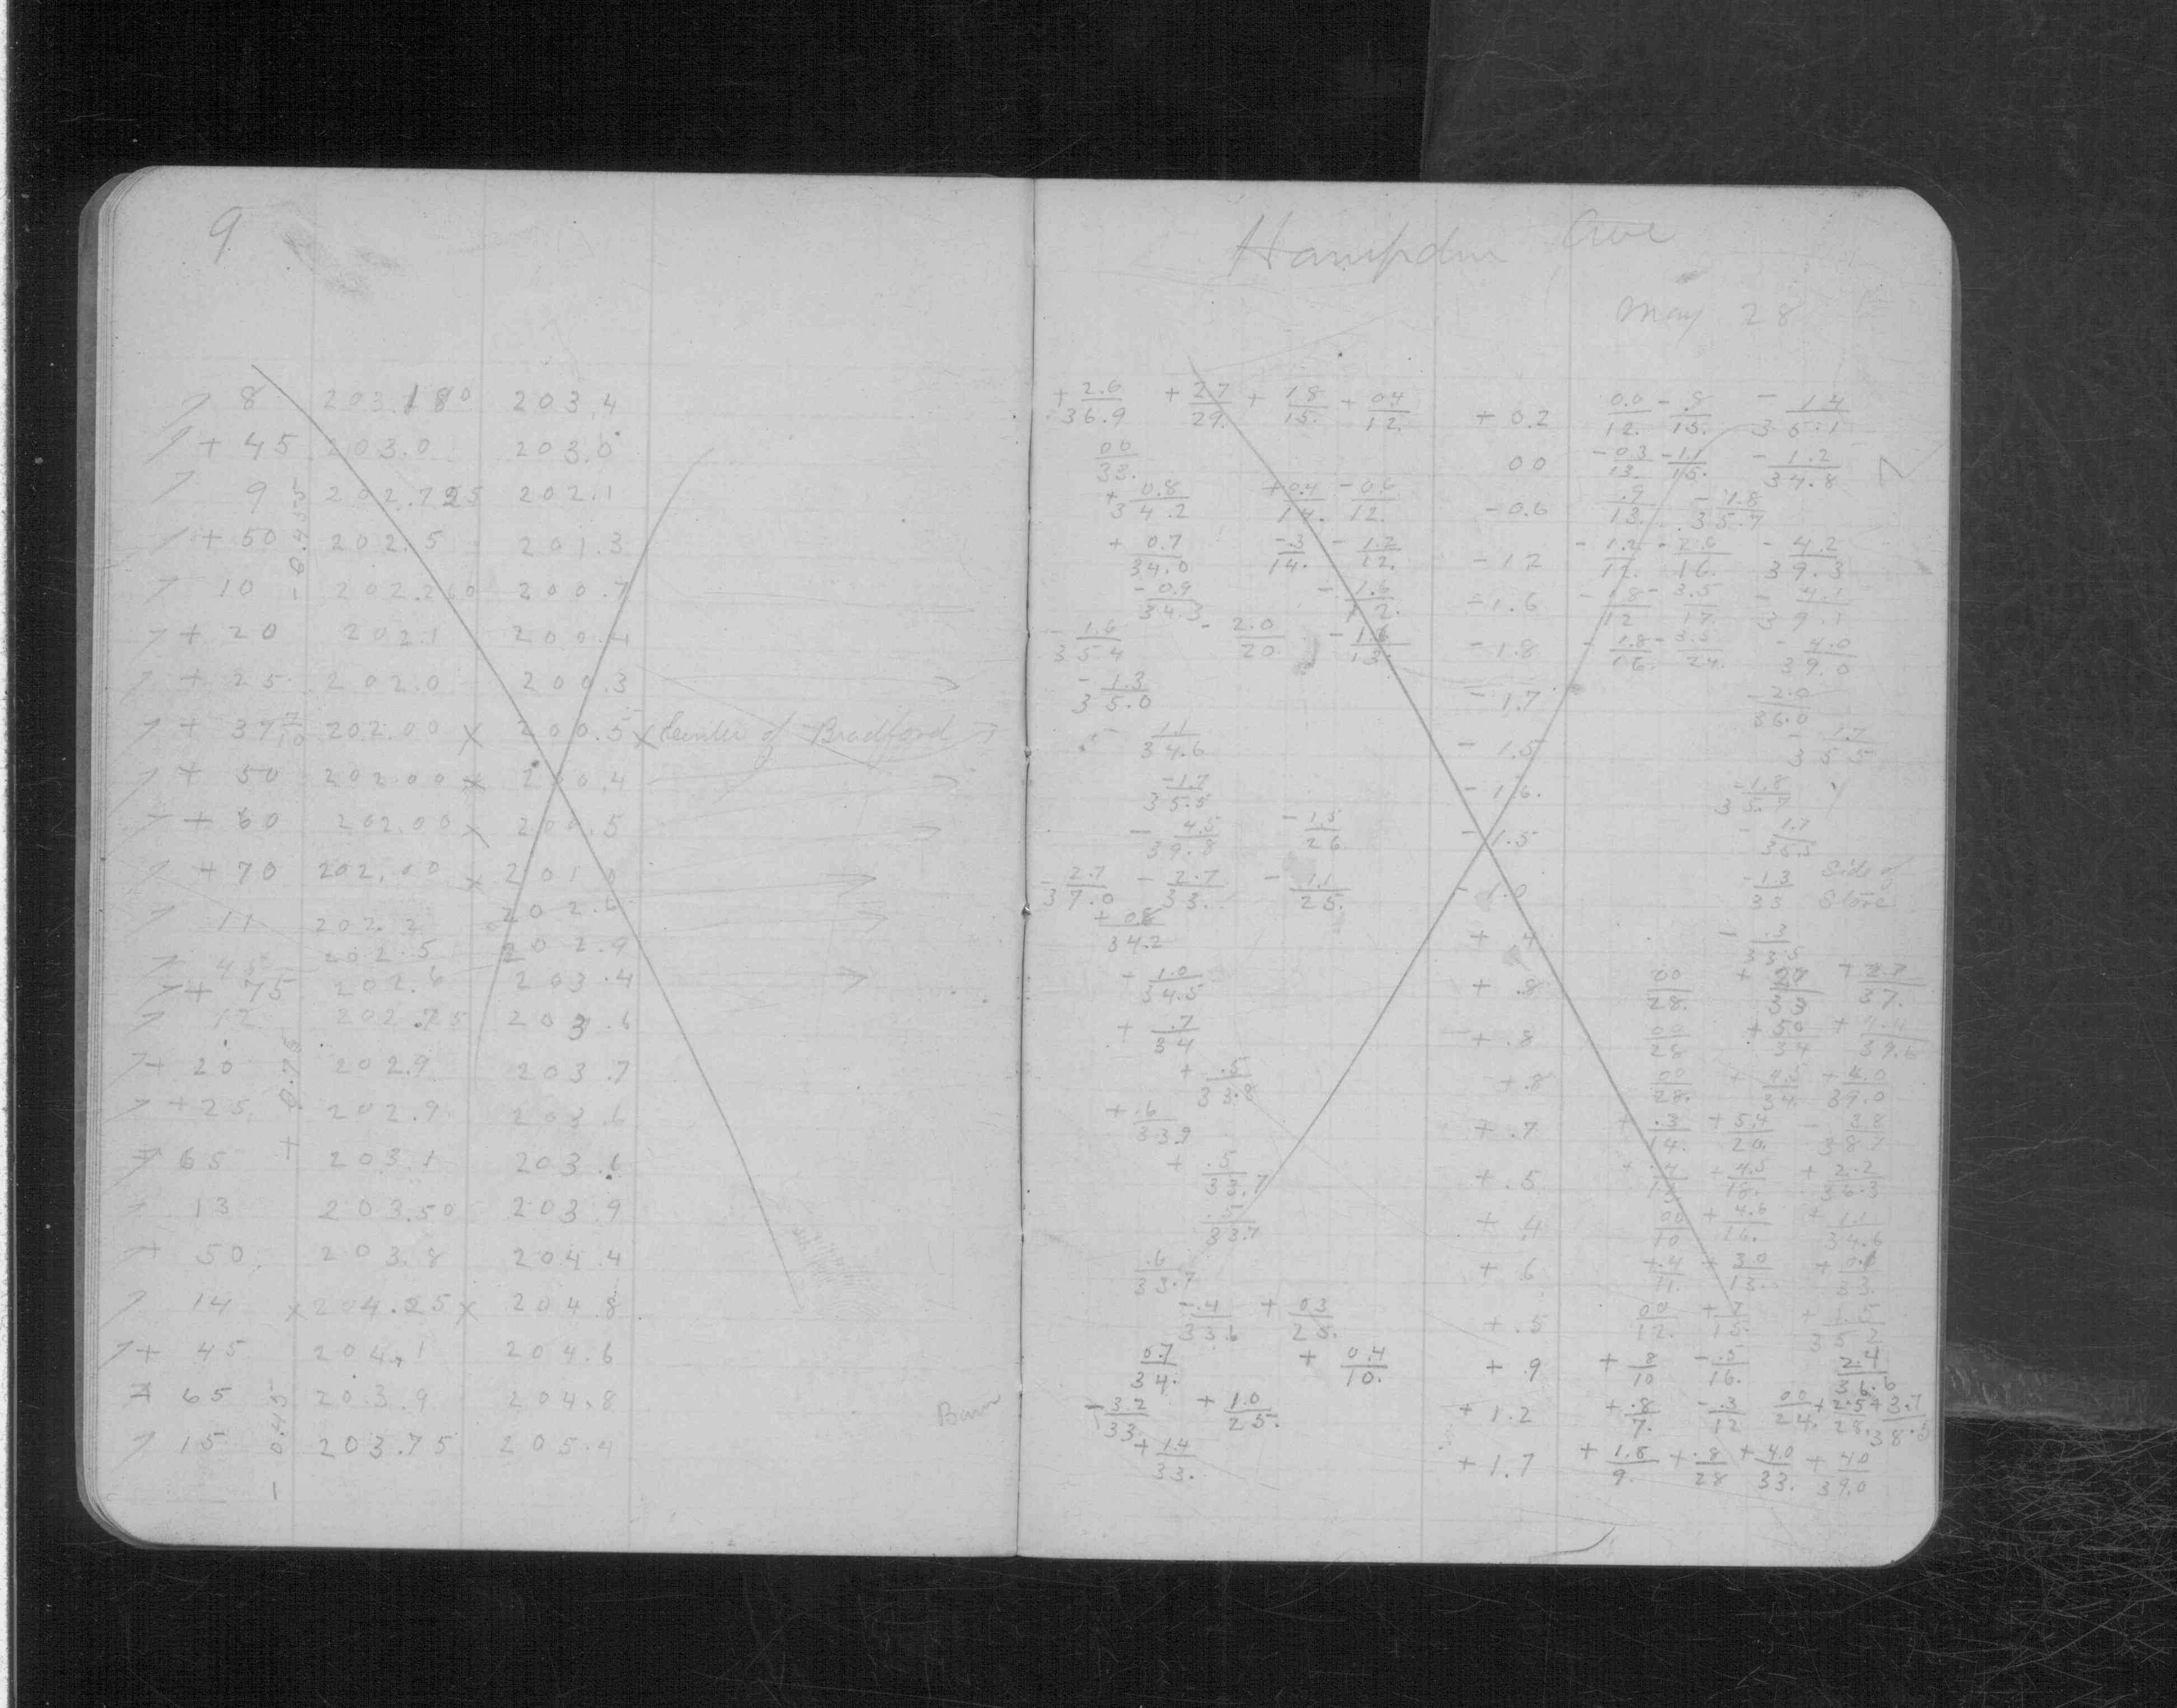 9
8 203.180 203.4
+ 45 203.0 203.0
9 202.725 202.1
+ 50 202.5 201.3
10 202.260 200.7
+ 20 202.1 200.4
+ 25 202.0 200.3
+ 37 7/10 202.00 x 200.5 x Center of Bradford
+ 50 202.00 x 200.4
+ 60 202.00 x 200.5
+ 70 202.00 x 201.0
11 202.2 202.6
202.5 202.9
+ 75 202.6 203.4
12 202.75 203.6
+ 20 202.9 203.7
+ 25 202.9 203.6
+ 65 203.1 203.6
13 203.50 203.9
+ 50 203.8 204.4
14 x 204.25 x 204.8
+ 45 204.1 204.6
+ 65 203.9 204.8
Barn
15 203.75 205.4
- 0.455
+ 0.75
- 0.45
Hampden Ave
May 28
+ 2.6/36.9 + 2.7/29. + 1.8/15. + 0.4/12. + 0.2 0.0/12. - .8/15. - 1.4/35.1
00/33. 00 - 0.3/13. - 1.1/15. - 1.2/34.8
+ 0.8/34.2 + 0.4/14. - 0.6/12. - 0.6 .9/13. - 1.8/35.7
+ 0.7/34.0 - .3/14. - 1.2/12. - 1.2 - 1.2/12. - 2.6/16. - 4.2/39.3
- 0.9/34.3 - 1.6/12. - 1.6 - 1.8/12 - 3.5/17. - 4.1/39.1
- 1.6/35.4 - 2.0/20. - 1.6/13. - 1.8 - 1.8/16. - 3.5/24. - 4.0/39.0
- 1.3/35.0 - 1.7 - 2.0/36.0
- 1.1/34.6 - 1.5 - 1.7/35.5
- 1.7/35.5 - 1.6. - 1.8/35.7
- 4.5/39.8 - 1.5/26 - 1.5 - 1.7/35.5
- 2.7/37.0 - 2.7/33. - 1.1/25. - 1.0 - 1.3/33 Side of Store
+ 0.8/34.2 + .4 - .3/33.5
- 1.0/34.5 + .8 00/28. + 2.7/33 + 2.7/37.
+ .7/34 + .8 00/28 + 50/34 + 4.4/39.6
+ .5/33.8 + .8 00/28. + 4.5/34. + 4.0/39.0
+ .6/33.9 + .7 + .3/14. + 5.4/20. - 3.8/38.7
+ .5/33.7 + .5 + .4/15 + 4.5/16. + 2.2/36.3
.5/33.7 + .4 00/10 + 4.6/16. + 1.1/34.6
.6/33.7 + .6 + .4/11. + 3.0/13.
- .4/33.6 + 03/25. + .5 00/12. + .7/15. + 1.5/35.2
0.7/34. + 0.4/10. + .9 + .8/10 - .5/16. 2.4/36.6
- 3.2/33. + 1.0/25. + 1.2 + .8/7. - .3/12 00/24. + 2.5/28. + 3.7/38.5
+ 1.4/33. + 1.7 + 1.8/9. + .8/28 + 4.0/33. + 4.0/39.0